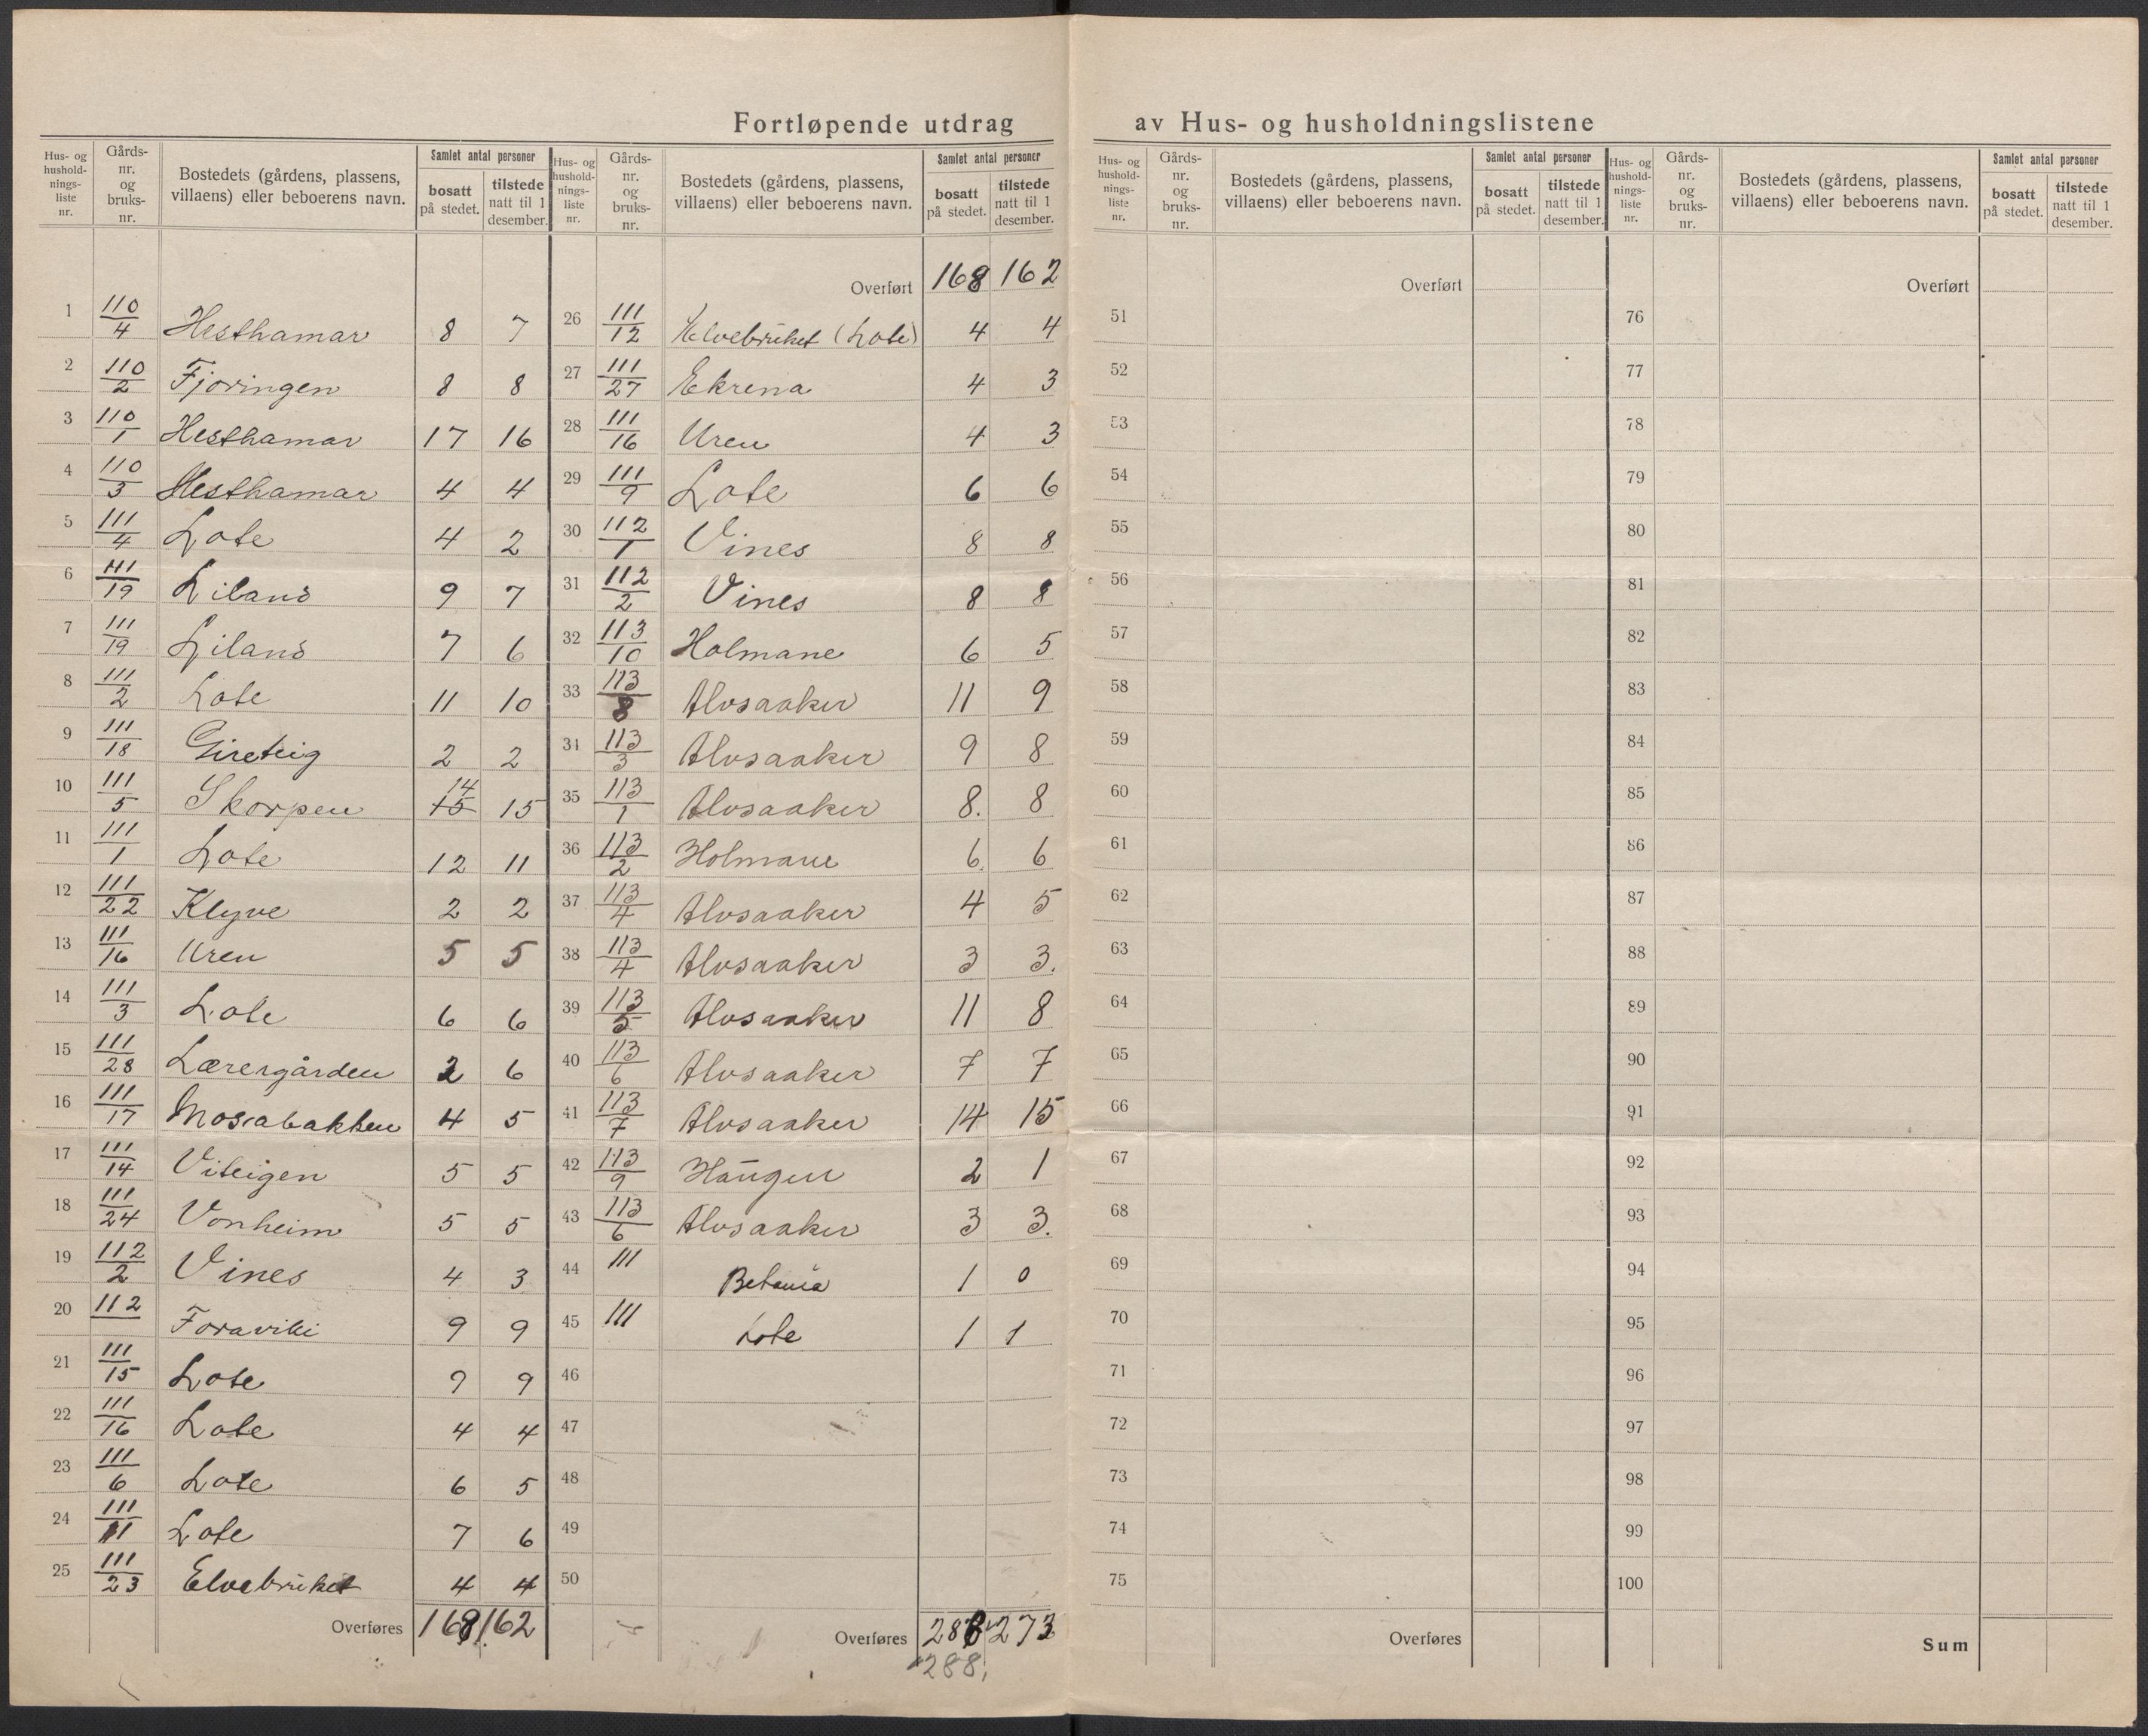 Fortløpende utdrag av Hus- og husholdningslistene
Hus- og hushold-nings-liste nr. | Gårds-nr. og bruks-nr. | Bostedets (gårdens, plassens, villaens) eller beboerens navn. | Samlet antal personer: bosatt på stedet. | tilstede natt til 1 desember.
1 110/4 Hesthamar 8 7
2 110/2 Fjoringen 8 8
3 110/1 Hesthamar 17 16
4 110/3 Hesthamar 4 4
5 111/4 Lote 4 2
6 111/19 Liland 9 7
7 111/19 Liland 7 6
8 111/2 Lote 11 10
9 111/18 Gireteig 2 2
10 111/5 Skorpen 15 14 15
11 111/1 Lote 12 11
12 111/22 Klyve 2 2
13 111/16 Uren 5 5
14 111/3 Lote 6 6
15 111/28 Lærergården 2 6
16 111/17 Mosabakken 4 5
17 111/14 Viteigen 5 5
18 111/24 Vonheim 5 5
19 112/2 Vines 4 3
20 112 Foraviki 9 9
21 111/15 Lote 9 9
22 111/16 Lote 4 4
23 111/6 Lote 6 5
24 111/11 Lote 7 6
25 111/23 Elvebruket 4 4
Overføres 168 162
Hus- og hushold-nings-liste nr. | Gårds-nr. og bruks-nr. | Bostedets (gårdens, plassens, villaens) eller beboerens navn. | Samlet antal personer: bosatt på stedet. | tilstede natt til 1 desember.
Overført 168 162
26 111/12 Elvebruket (Lote) 4 4
27 111/27 Ekrena 4 3
28 111/16 Uren 4 3
29 111/9 Lote 6 6
30 112/1 Vines 8 8
31 112/2 Vines 8 8
32 113/10 Holmane 6 5
33 113/8 Alvsaaker 11 9
34 113/3 Alvsaaker 9 8
35 113/1 Alvsaaker 8. 8
36 113/2 Holmane 6. 6
37 113/4 Alvsaaker 4 5
38 113/4 Alvsaaker 3 3.
39 113/5 Alvsaaker 11 8
40 113/6 Alvsaaker 7 7
41 113/7 Alvsaaker 14 15
42 113/9 Haugen 2 1
43 113/6 Alvsaaker 3 3.
44 111 Betania 1 0
45 111 Lote 1 1
46
47
48
49
50
Overføres 288 273
288
Hus- og hushold-nings-liste nr. | Gårds-nr. og bruks-nr. | Bostedets (gårdens, plassens, villaens) eller beboerens navn. | Samlet antal personer: bosatt på stedet. | tilstede natt til 1 desember.
Overført
51
52
53
54
55
56
57
58
59
60
61
62
63
64
65
66
67
68
69
70
71
72
73
74
75
Overføres
Hus- og hushold-nings-liste nr. | Gårds-nr. og bruks-nr. | Bostedets (gårdens, plassens, villaens) eller beboerens navn. | Samlet antal personer: bosatt på stedet. | tilstede natt til 1 desember.
Overført
76
77
78
79
80
81
82
83
84
85
86
87
88
89
90
91
92
93
94
95
96
97
98
99
100
Sum